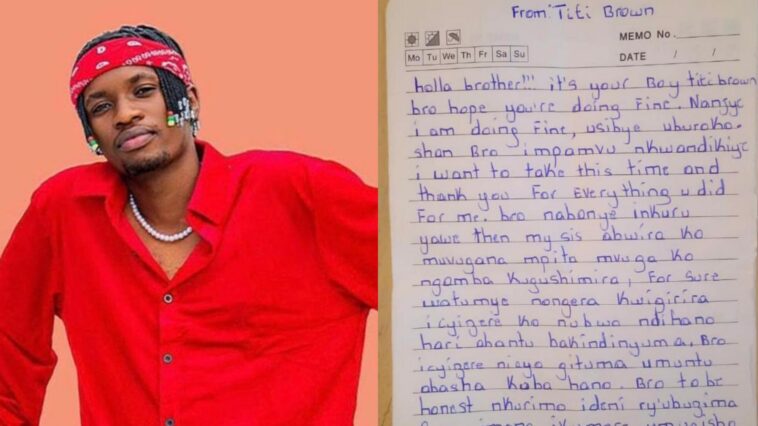 From: Titi Brown
MEMO No.
DATE / /
Mo Tu We Th Fr Sa Su
holla brother!!! it's your Boy titi brown
bro hope you're doing Fine. Nanjye
i am doing Fine, usibye uburoko.
shan Bro impamvu nkwandikiye
i want to take this time and
thank you For Everything u did
For me. bro nabonye inkuru
yawe then my sis abwira ko
muvugana mpita mvuga ko
ngomba Kugushimira, For sure
watumye nongera Kwigirira
icyigere ko nubwo ndi hano
hari abantu bakindinyuma. Bro
icyigere nicyo gituma umuntu
abasha Kuba hano. Bro to be
honest nkurimo ideni ry'ubugima